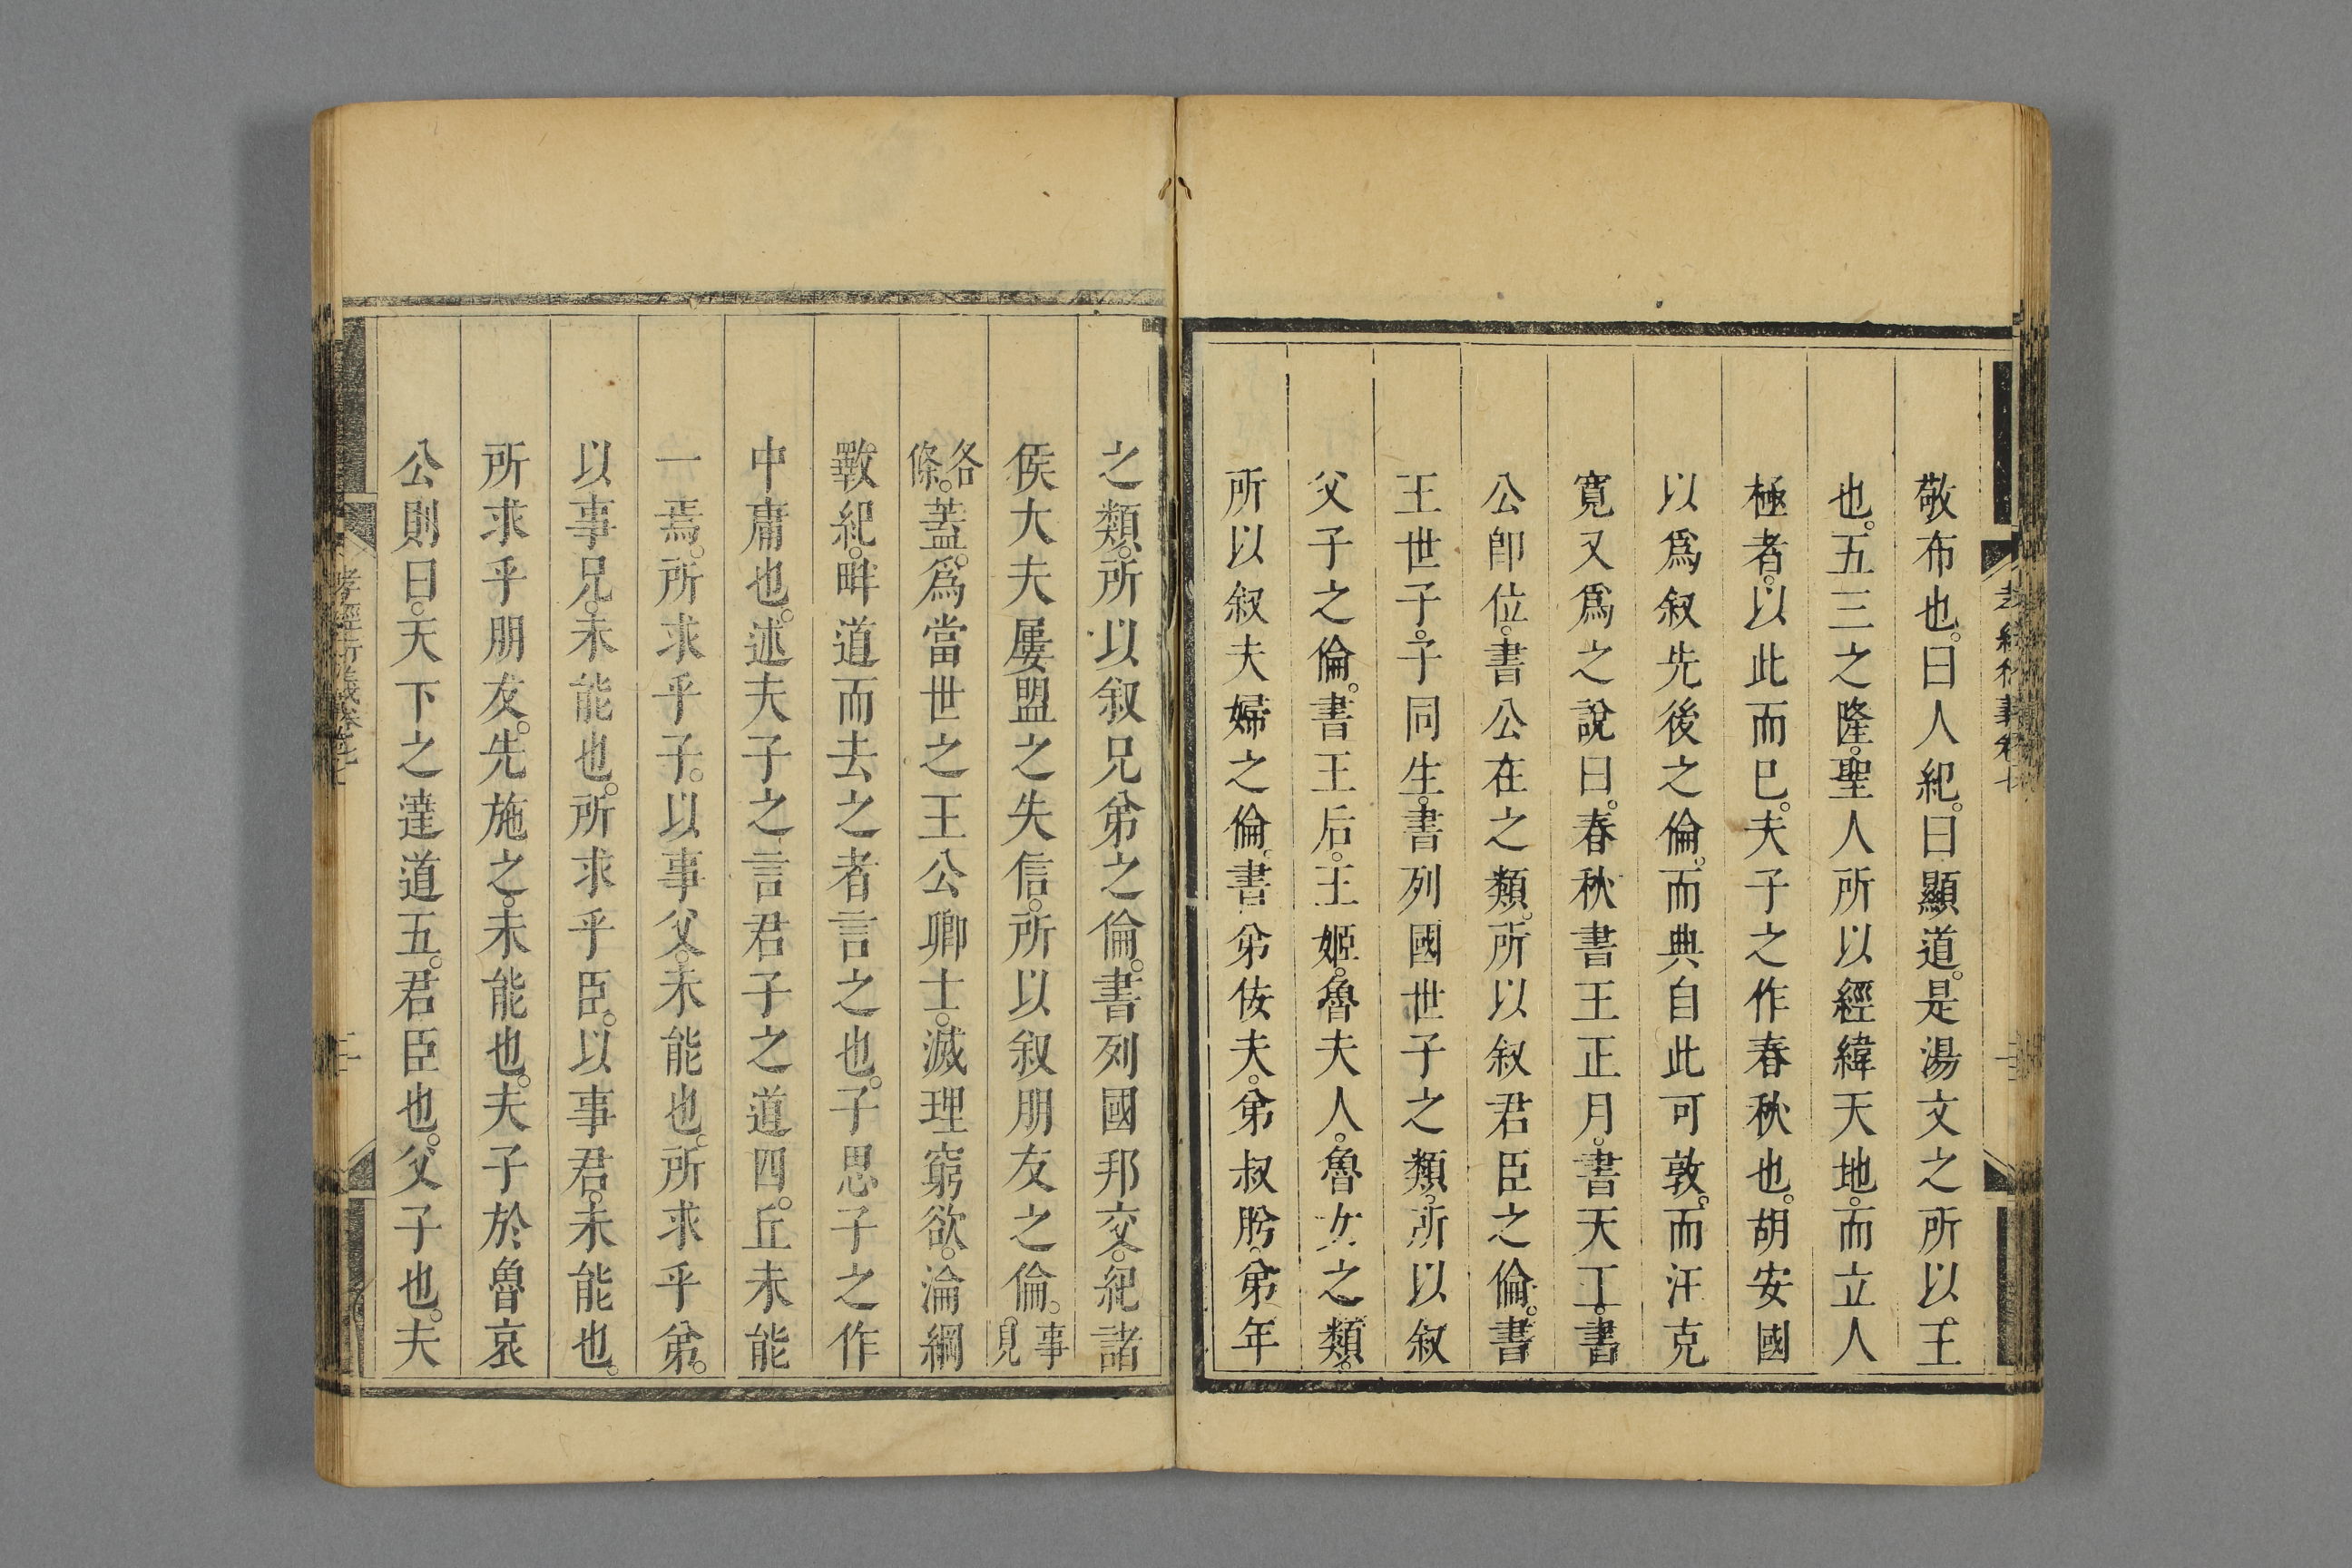 敬布也。曰人紀。曰顯道。是湯文之所以王
也。五三之隆。聖人所以經緯天地。而立人
極者。以此而巳。夫子之作春秋也。胡安國
以爲叙先後之倫。而典自此可敦。而汪克
寬又爲之說曰。春秋書王正月。書天王。書
公卽位。書公在之類。所以叙君臣之倫。書
王世子。子同生。書列國世子之類。所以叙
父子之倫。書王后。王姬。魯夫人。魯女之類。
所以叙夫婦之倫。書弟佞夫。弟叔肸。弟年
之類。所以叙兄弟之倫。書列國邦交。紀諸
侯大夫屢盟之失信。所以叙朋友之倫。事見
各條。蓋爲當世之王公卿士。滅理窮欲。淪綱
斁紀。畔道而去之者言之也。子思子之作
中庸也。述夫子之言君子之道四。丘未能
一焉。所求乎子。以事父。未能也。所求乎弟。
以事兄。未能也。所求乎臣。以事君。未能也。
所求乎朋友。先施之。未能也。夫子於魯哀
公則曰。天下之達道五。君臣也。父子也。夫
孝經衍義卷之七